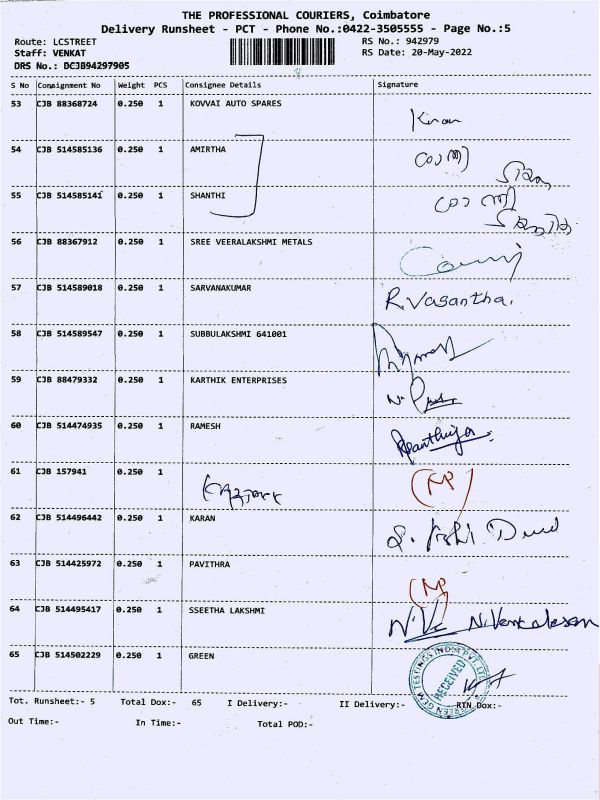 THE PROFESSIONAL COURIERS, Coimbatore
Delivery Runsheet - PCT - Phone No.:0422-3505555 - Page No.:5
Route: LCSTREET
RS No.: 942979
Staff: VENKAT
RS Date: 20-May-2022
DRS No.: DCJB94297905
S No Consignment No Weight PCS Consignee Details Signature
53 CJB 88368724 0.250 1 KOVVAI AUTO SPARES Kiran
54 CJB 514585136 0.250 1 AMIRTHA
55 CJB 514585141 0.250 1 SHANTHI
56 CJB 88367912 0.250 1 SREE VEERALAKSHMI METALS
57 CJB 514589018 0.250 1 SARVANAKUMAR R.Vasantha.
58 CJB 514589547 0.250 1 SUBBULAKSHMI 641001
59 CJB 88479332 0.250 1 KARTHIK ENTERPRISES
60 CJB 514474935 0.250 1 RAMESH
61 CJB 157941 0.250 1 (NP)
62 CJB 514496442 0.250 1 KARAN
63 CJB 514425972 0.250 1 PAVITHRA (NP)
64 CJB 514495417 0.250 1 SSEETHA LAKSHMI N.Venkatesan
65 CJB 514502229 0.250 1 GREEN RECEIVED
Tot. Runsheet:- 5 Total Dox:- 65 I Delivery:- II Delivery:- RTN Dox:-
Out Time:- In Time:- Total POD:-